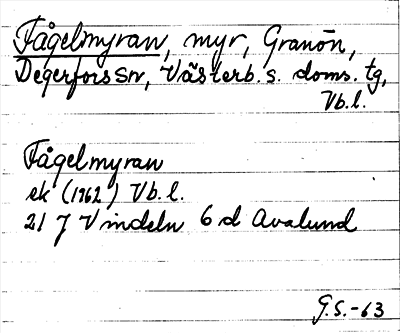 Fågelmyran, myr, Granön,
Degerfors sn, Västerb. s. doms. tg,
Vb.l.
Fågelmyran
ek (1962) Vb.l.
21 J Vindeln 6 d Avalund
G.S.-63